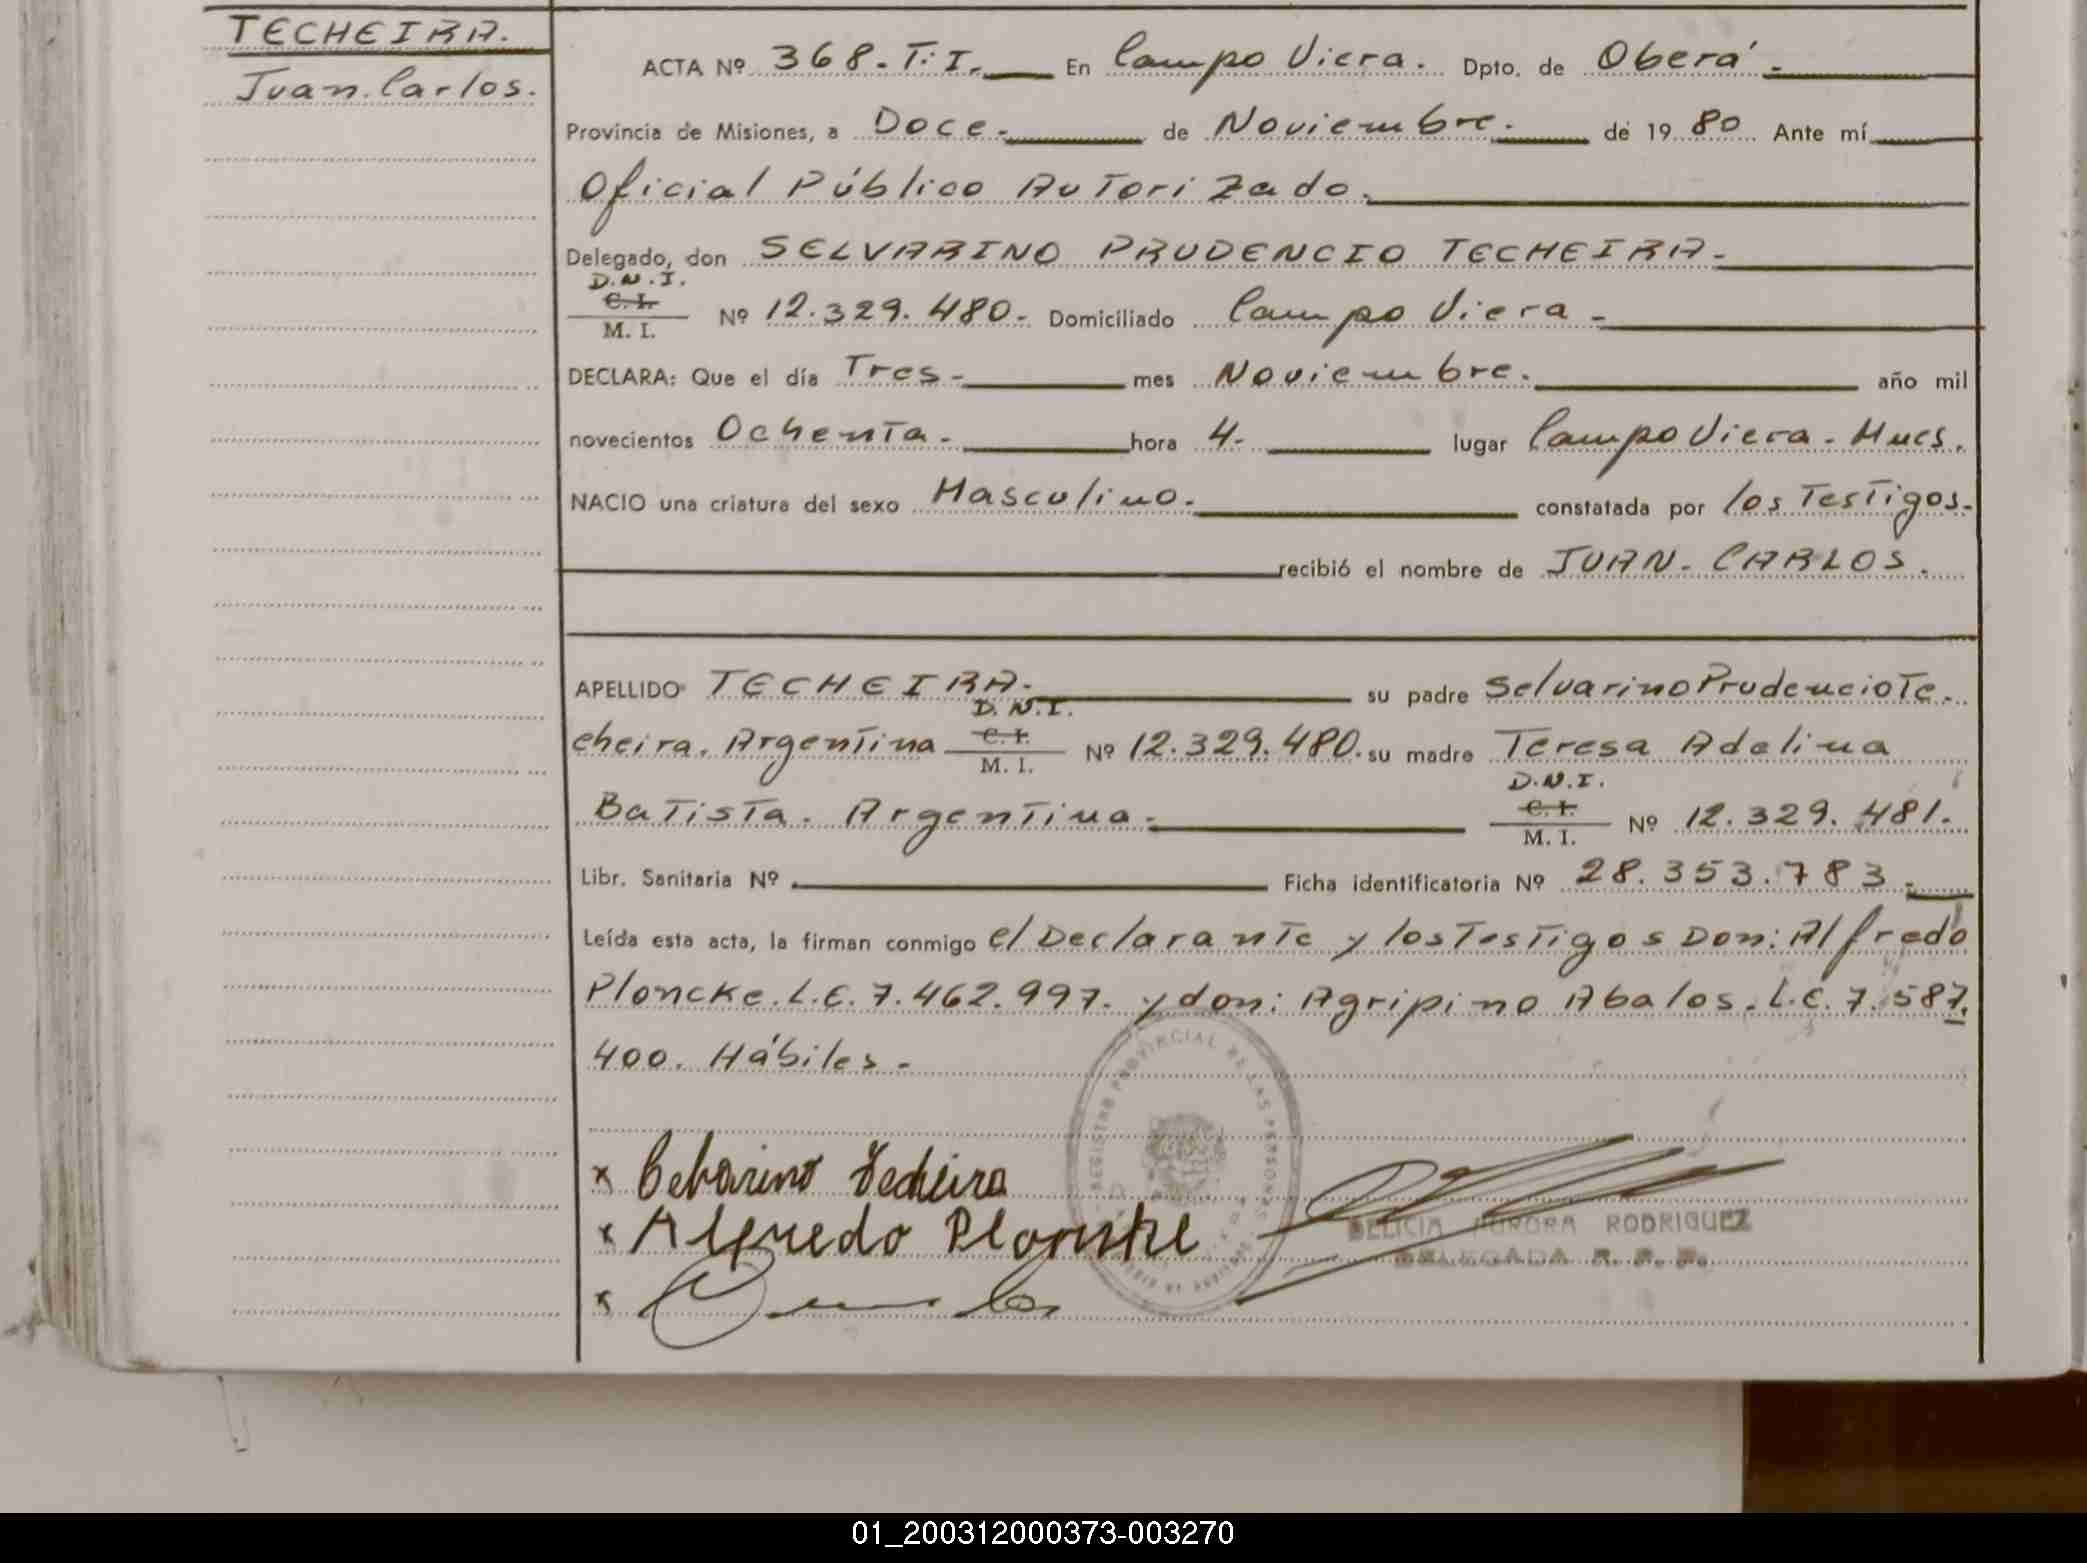 TECHEIRA.
Juan Carlos.
ACTA Nº 368. T. I. En Campo Viera. Dpto. de Oberá.
Provincia de Misiones, a Doce. de Noviembre. de 19 80 Ante mí
Oficial Público Autorizado.
Delegado, don SELVARINO PRUDENCIO TECHEIRA.
D.N.I.
C. I.
M. I. Nº 12.329.480. Domiciliado Campo Viera.
DECLARA: Que el día Tres mes Noviembre. año mil
novecientos Ochenta. hora 4. lugar Campo Viera. Mnes.
NACIO una criatura del sexo Masculino. constatada por los Testigos.
recibió el nombre de JUAN. CARLOS.
APELLIDO TECHEIRA. su padre Selvarino Prudencio Te-
D.N.I.
C. I.
cheira. Argentina M. I. Nº 12.329.480. su madre Teresa Adelina
D.N.I.
C. I.
Batista. Argentina. M. I. Nº 12.329.481.
Libr. Sanitaria Nº Ficha identificatoria Nº 28.353.783.
Leída esta acta, la firman conmigo el Declarante y los Testigos Don: Alfredo
Ploncke. L.E. 7.462.997. y don: Agripino Abalos. L.E. 7.587.
400. Hábiles.
REGISTRO PROVINCIAL DE LAS PERSONAS
x Celvarino Techeira
x Alfredo Plonske
x
DELICIA AURORA RODRIGUEZ
DELEGADA R. P. P.
01_200312000373-003270